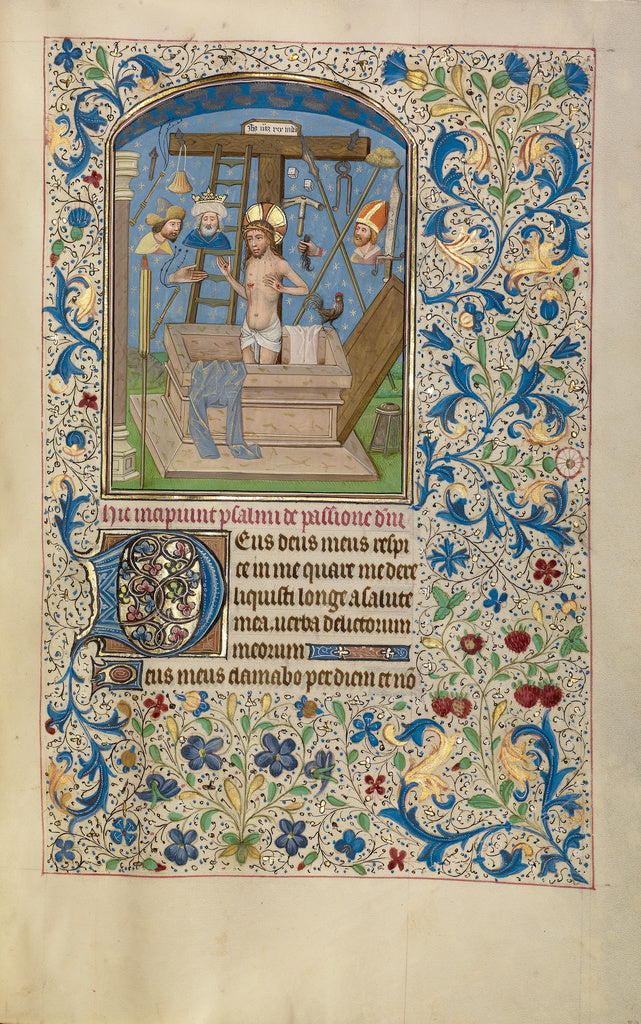 ihs naz rex iud
Hic incipiunt psalmi de passione dm̄
Deus deus meus respi
ce in me quare me dere
liquisti longe a salute
mea uerba delictorum
meorum
Deus meus clamabo per diem et nō